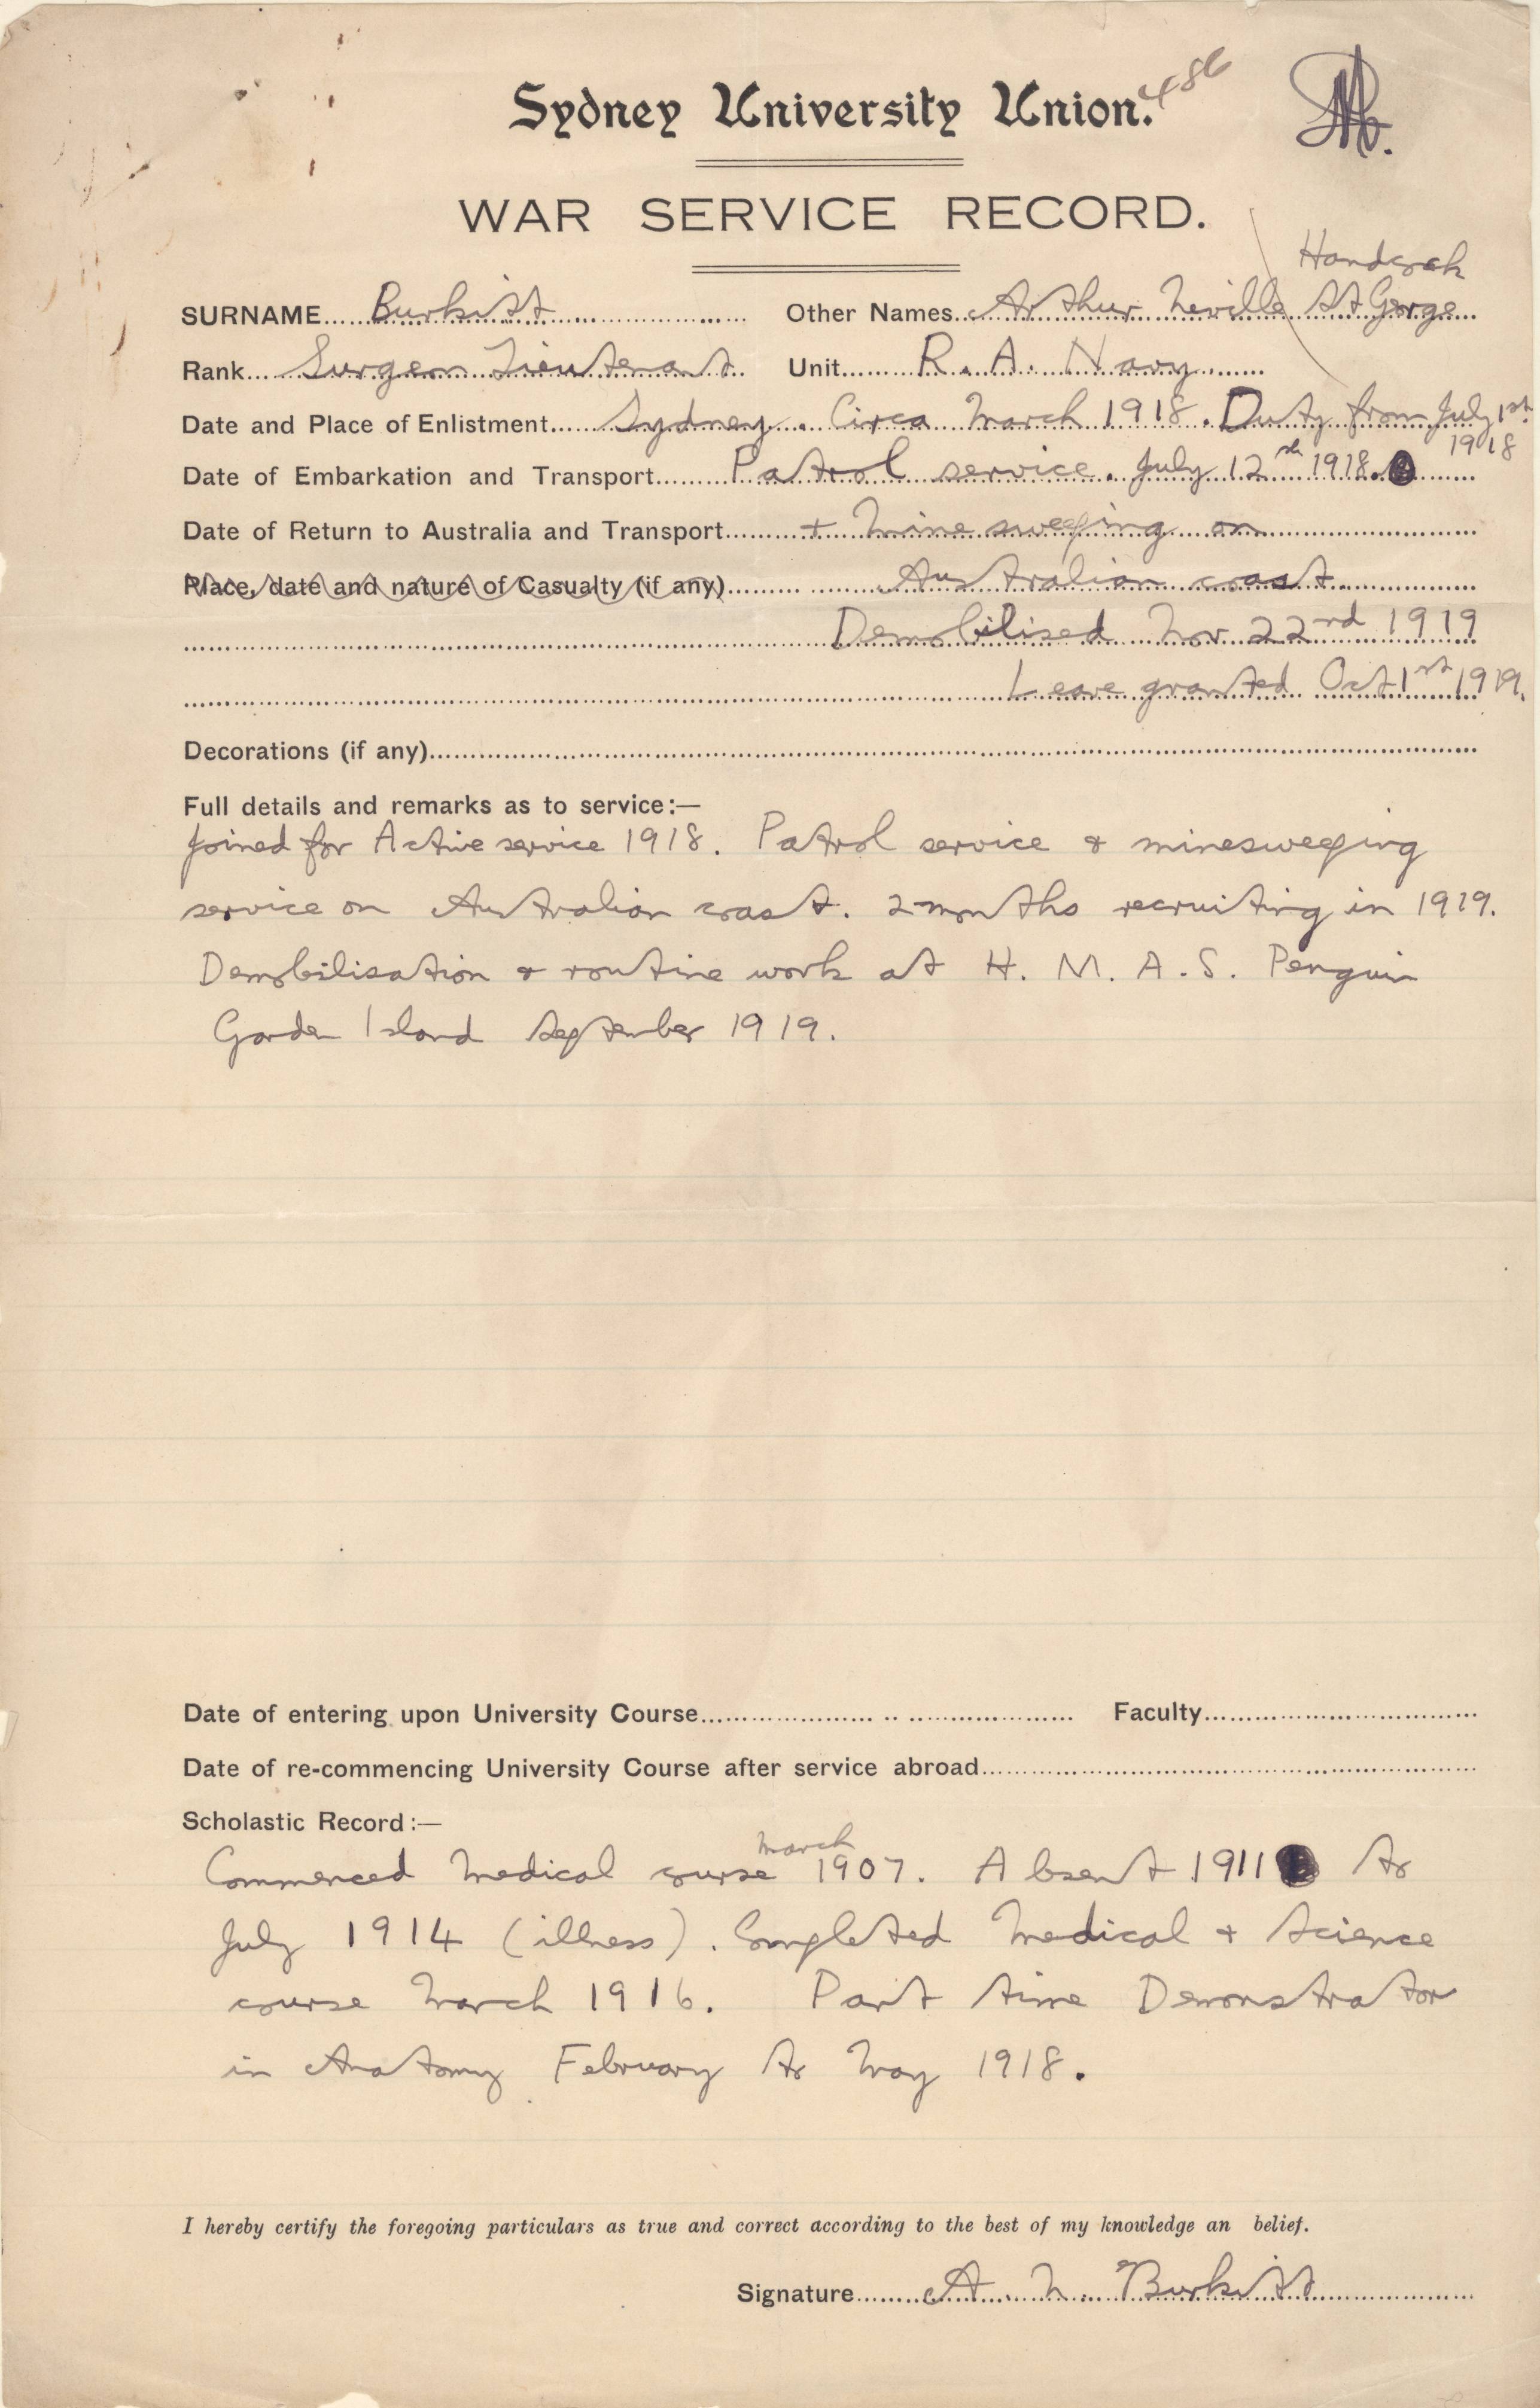 Sydney University Union. 486
WAR SERVICE RECORD.
Handcock
SURNAME Burkitt Other Names Arthur Neville St George
Rank Surgeon Lieutenant Unit R. A. Navy
Date and Place of Enlistment Sydney. Circa March 1918. Duty from July 1st
1918
Date of Embarkation and Transport Patrol service. July 12th 1918.
Date of Return to Australia and Transport + Mine sweeping on
Place, date and nature of Casualty (if any) Australian coast.
Demobilised Nov 22nd 1919
Leave granted Oct 1st 1919.
Decorations (if any)
Full details and remarks as to service:—
Joined for Active service 1918. Patrol service & minesweeping
service on Australian coast. 2 months recruiting in 1919.
Demobilisation & routine work at H. M. A. S. Penguin
Garden Island September 1919.
Date of entering upon University Course Faculty
Date of re-commencing University Course after service abroad
Scholastic Record:—
Commenced Medical course March 1907. Absent 1911 to
July 1914 (illness). Completed Medical + Science
course March 1916. Part time Demonstrator
in Anatomy February to May 1918.
I hereby certify the foregoing particulars as true and correct according to the best of my knowledge an belief.
Signature A. N. Burkitt